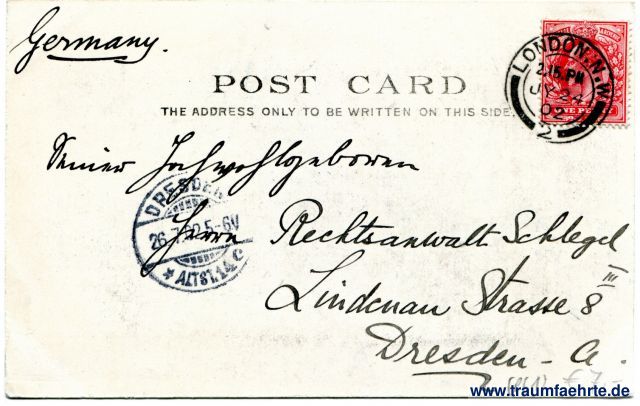 Germany.
POST CARD
THE ADDRESS ONLY TO BE WRITTEN ON THIS SIDE.
LONDON. N.W
2.15 PM
JY 24
02
2
ONE PENNY
Seiner Hochwohlgeboren
Herrn Rechtsanwalt Schlegel
Lindenau Strasse 8 III
Dresden - A.
DRESDEN
26.7.02.5-6V
* ALTST. 14. c
£ 7,-
www.traumfaehrte.de